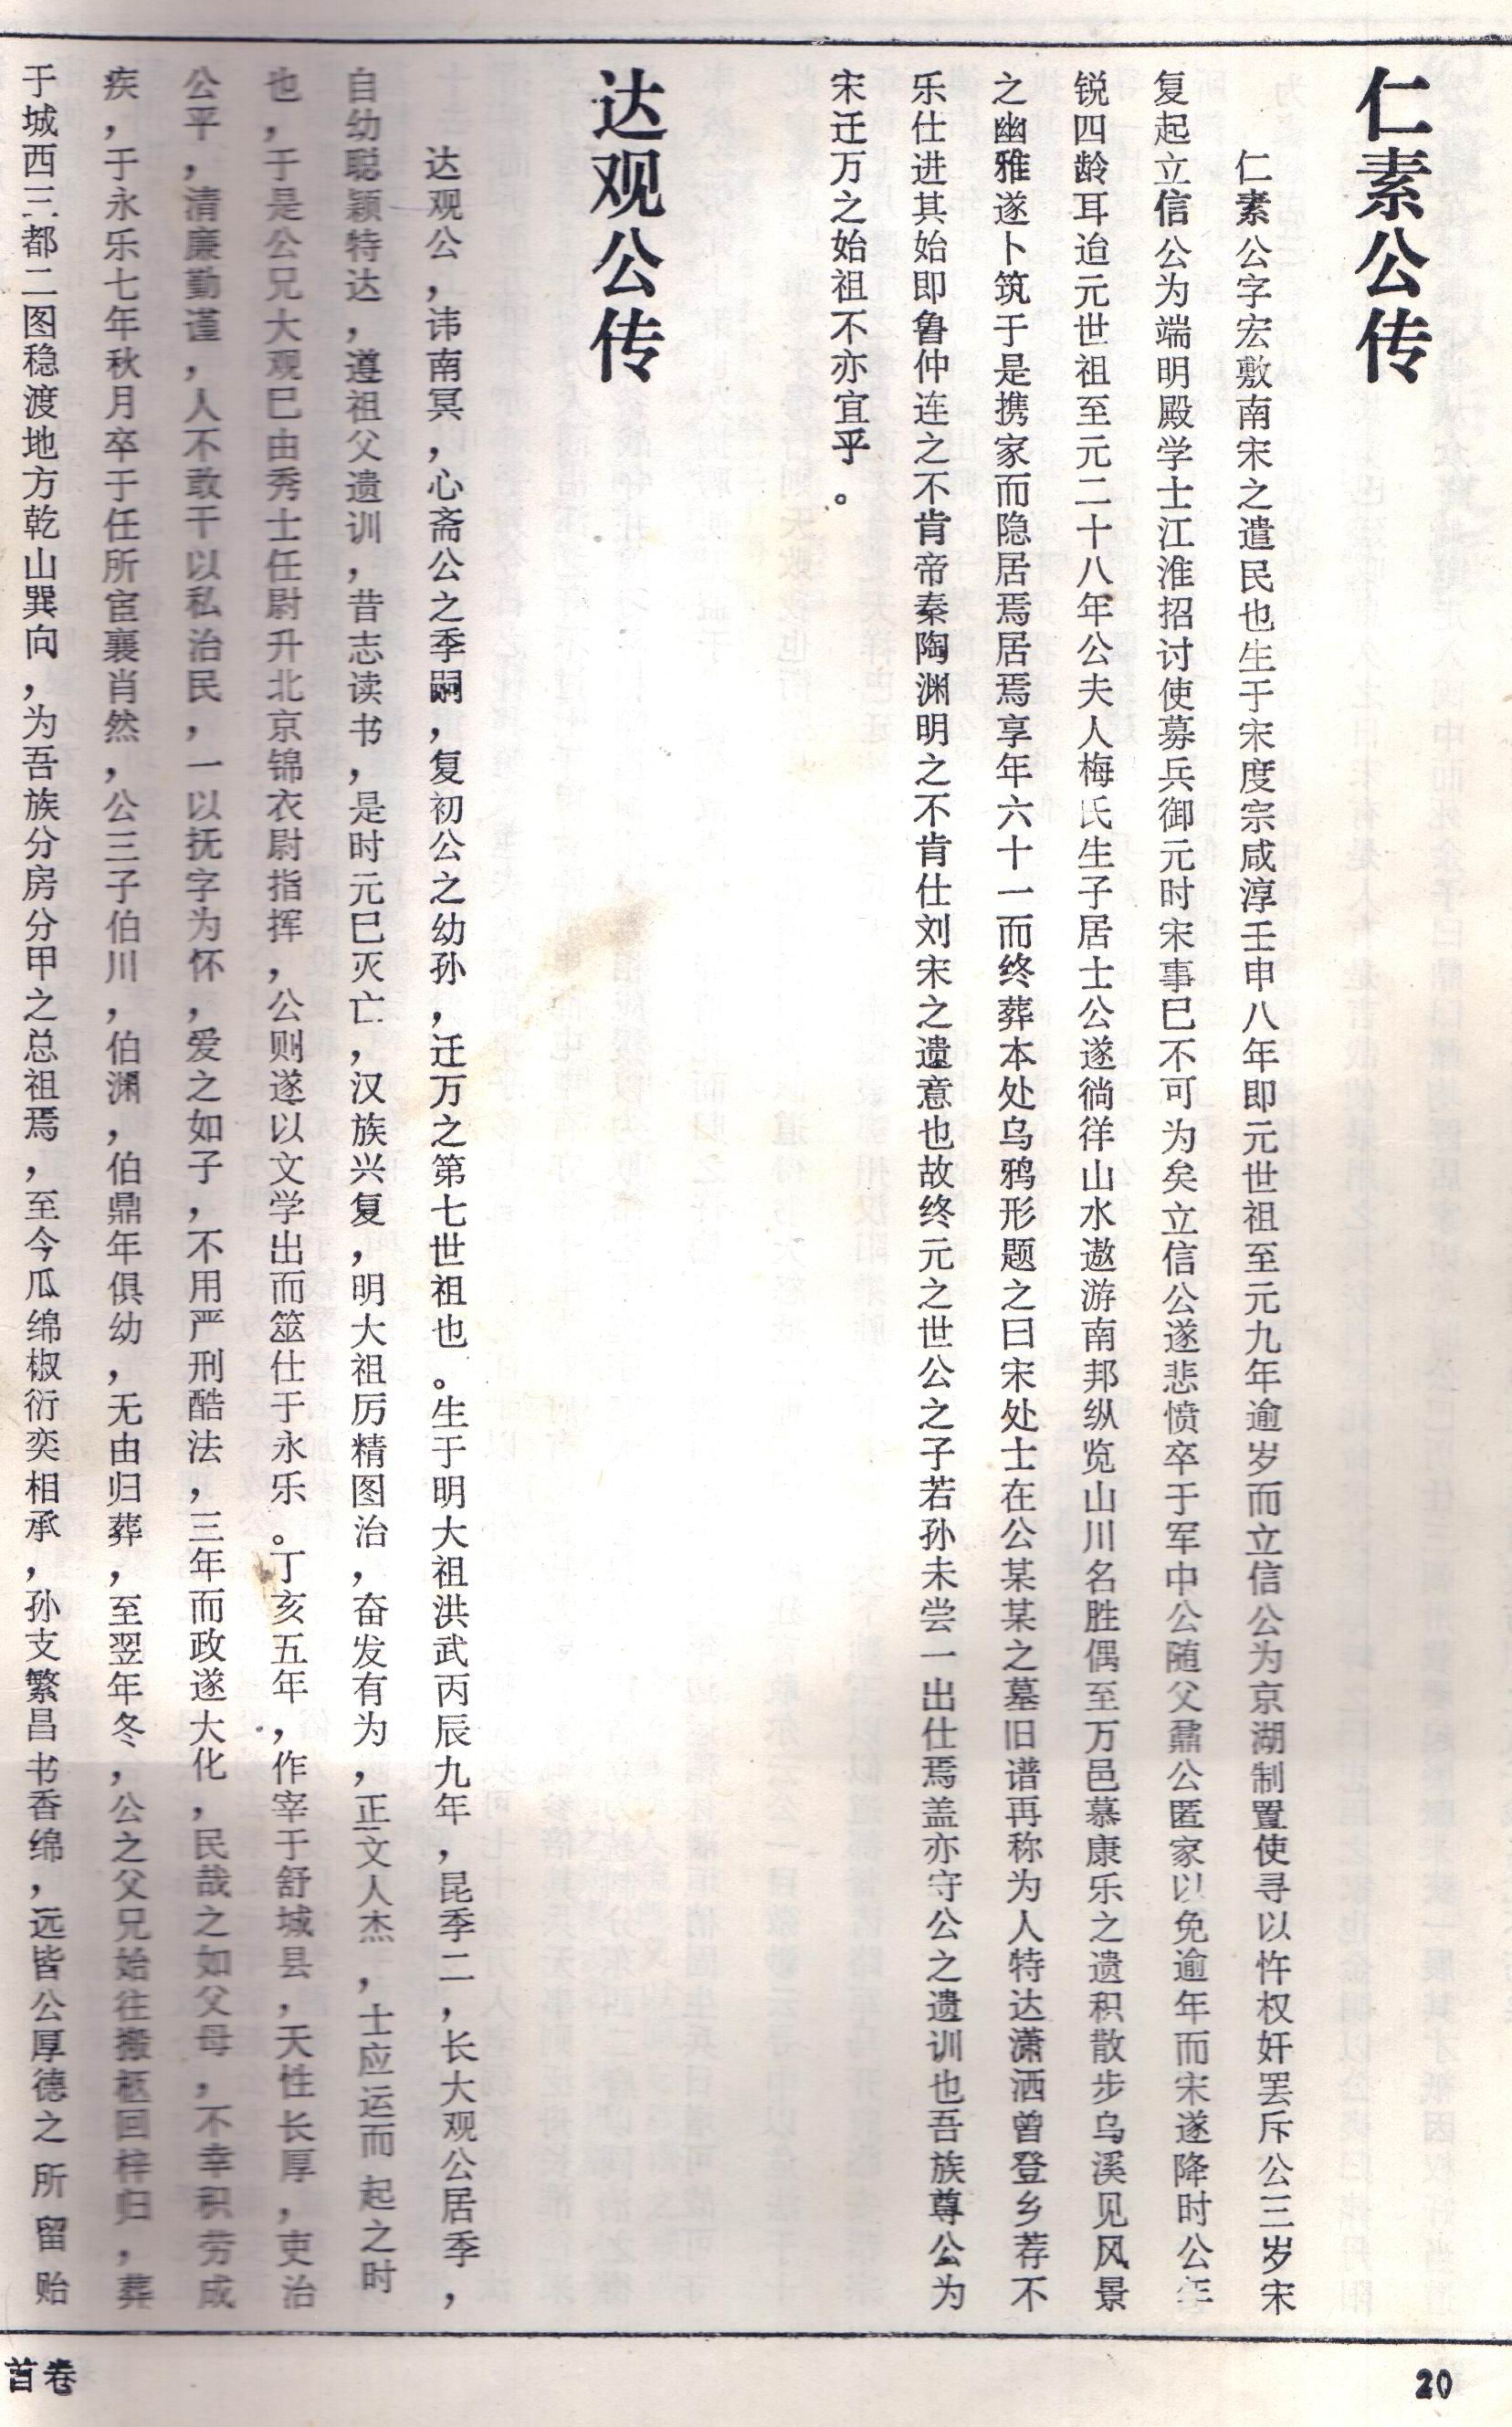 仁素公传
仁素公字宏敷南宋之遣民也生于宋度宗咸淳壬申八年即元世祖至元九年逾岁而立信公为京湖制置使寻以忤权奸罢斥公三岁宋
复起立信公为端明殿学士江淮招讨使募兵御元时宋事巳不可为矣立信公遂悲愤卒于军中公随父鼐公匿家以免逾年而宋遂降时公年
锐四龄耳迨元世祖至元二十八年公夫人梅氏生子居士公遂徜徉山水遨游南邦纵览山川名胜偶至万邑慕康乐之遗积散步乌溪见风景
之幽雅遂卜筑于是携家而隐居焉居焉享年六十一而终葬本处乌鸦形题之曰宋处士在公某某之墓旧谱再称为人特达潇洒曾登乡荐不
乐仕进其始即鲁仲连之不肯帝秦陶渊明之不肯仕刘宋之遗意也故终元之世公之子若孙未尝一出仕焉盖亦守公之遗训也吾族尊公为
宋迁万之始祖不亦宜乎。
达观公传
达观公，讳南冥，心斋公之季嗣，复初公之幼孙，迁万之第七世祖也。生于明大祖洪武丙辰九年，昆季二，长大观公居季，
自幼聪颖特达，遵祖父遗训，昔志读书，是时元巳灭亡，汉族兴复，明大祖厉精图治，奋发有为，正文人杰，士应运而起之时
也，于是公兄大观巳由秀士任尉升北京锦衣尉指挥，公则遂以文学出而筮仕于永乐。丁亥五年，作宰于舒城县，天性长厚，吏治
公平，清廉勤谨，人不敢干以私治民，一以抚字为怀，爱之如子，不用严刑酷法，三年而政遂大化，民哉之如父母，不幸积劳成
疾，于永乐七年秋月卒于任所宦襄肖然，公三子伯川，伯渊，伯鼎年俱幼，无由归葬，至翌年冬，公之父兄始往搬柩回梓归，葬
于城西三都二图稳渡地方乾山巽向，为吾族分房分甲之总祖焉，至今瓜绵椒衍奕相承，孙支繁昌书香绵，远皆公厚德之所留贻
首卷
20